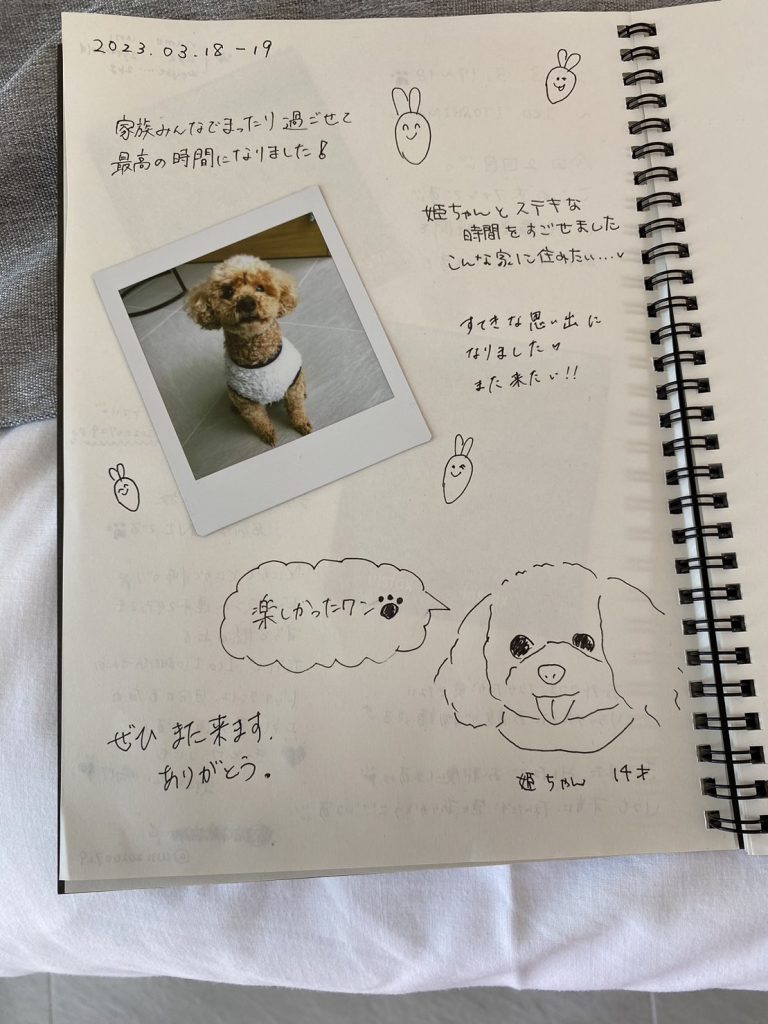 2023.03.18-19
家族みんなでまったり過ごせて
最高の時間になりました!
姫ちゃんとステキな
時間をすごせました
こんな家に住みたい...♡
すてきな思い出に
なりました♡
また来たい!!
楽しかったワン
ぜひまた来ます.
ありがとう。
姫ちゃん 14才